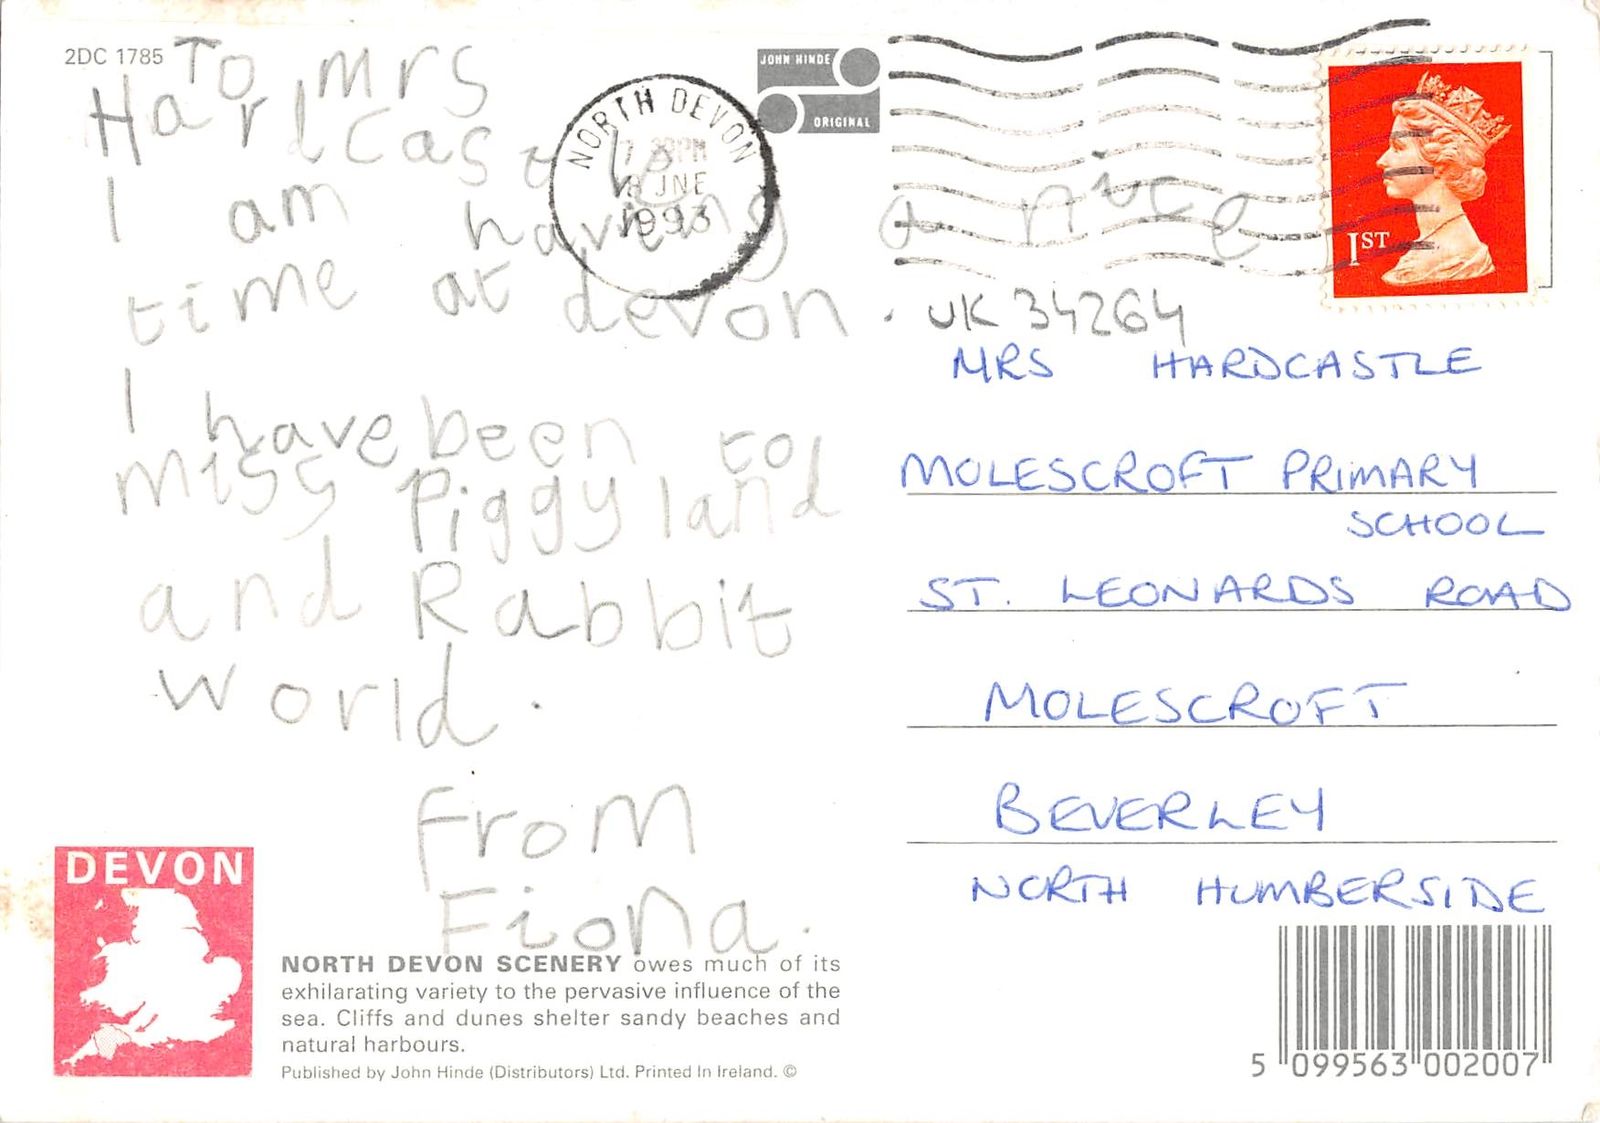 2DC 1785
To Mrs
Hardcastle
I am having a nice
time at devon.
I have been to
Miss Piggy land
and Rabbit
World.
From
Fiona.
JOHN HINDE
ORIGINAL
NORTH DEVON
8 JNE
1993
1ST
UK 34264
MRS HARDCASTLE
MOLESCROFT PRIMARY
SCHOOL
ST. LEONARDS ROAD
MOLESCROFT
BEVERLEY
NORTH HUMBERSIDE
DEVON
NORTH DEVON SCENERY owes much of its
exhilarating variety to the pervasive influence of the
sea. Cliffs and dunes shelter sandy beaches and
natural harbours.
Published by John Hinde (Distributors) Ltd. Printed In Ireland. ©
5 099563 002007